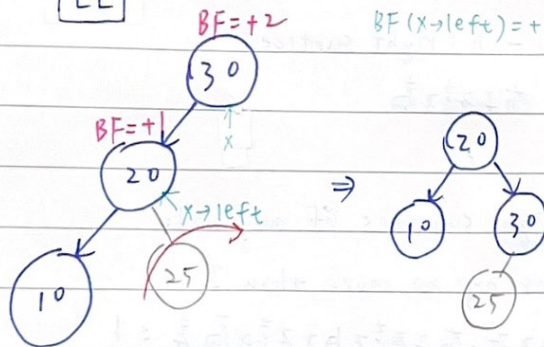 LL
BF=+2
BF(x→left)=+
30
BF=+1
x
20
20
⇒
x→left
10
30
25
10
25